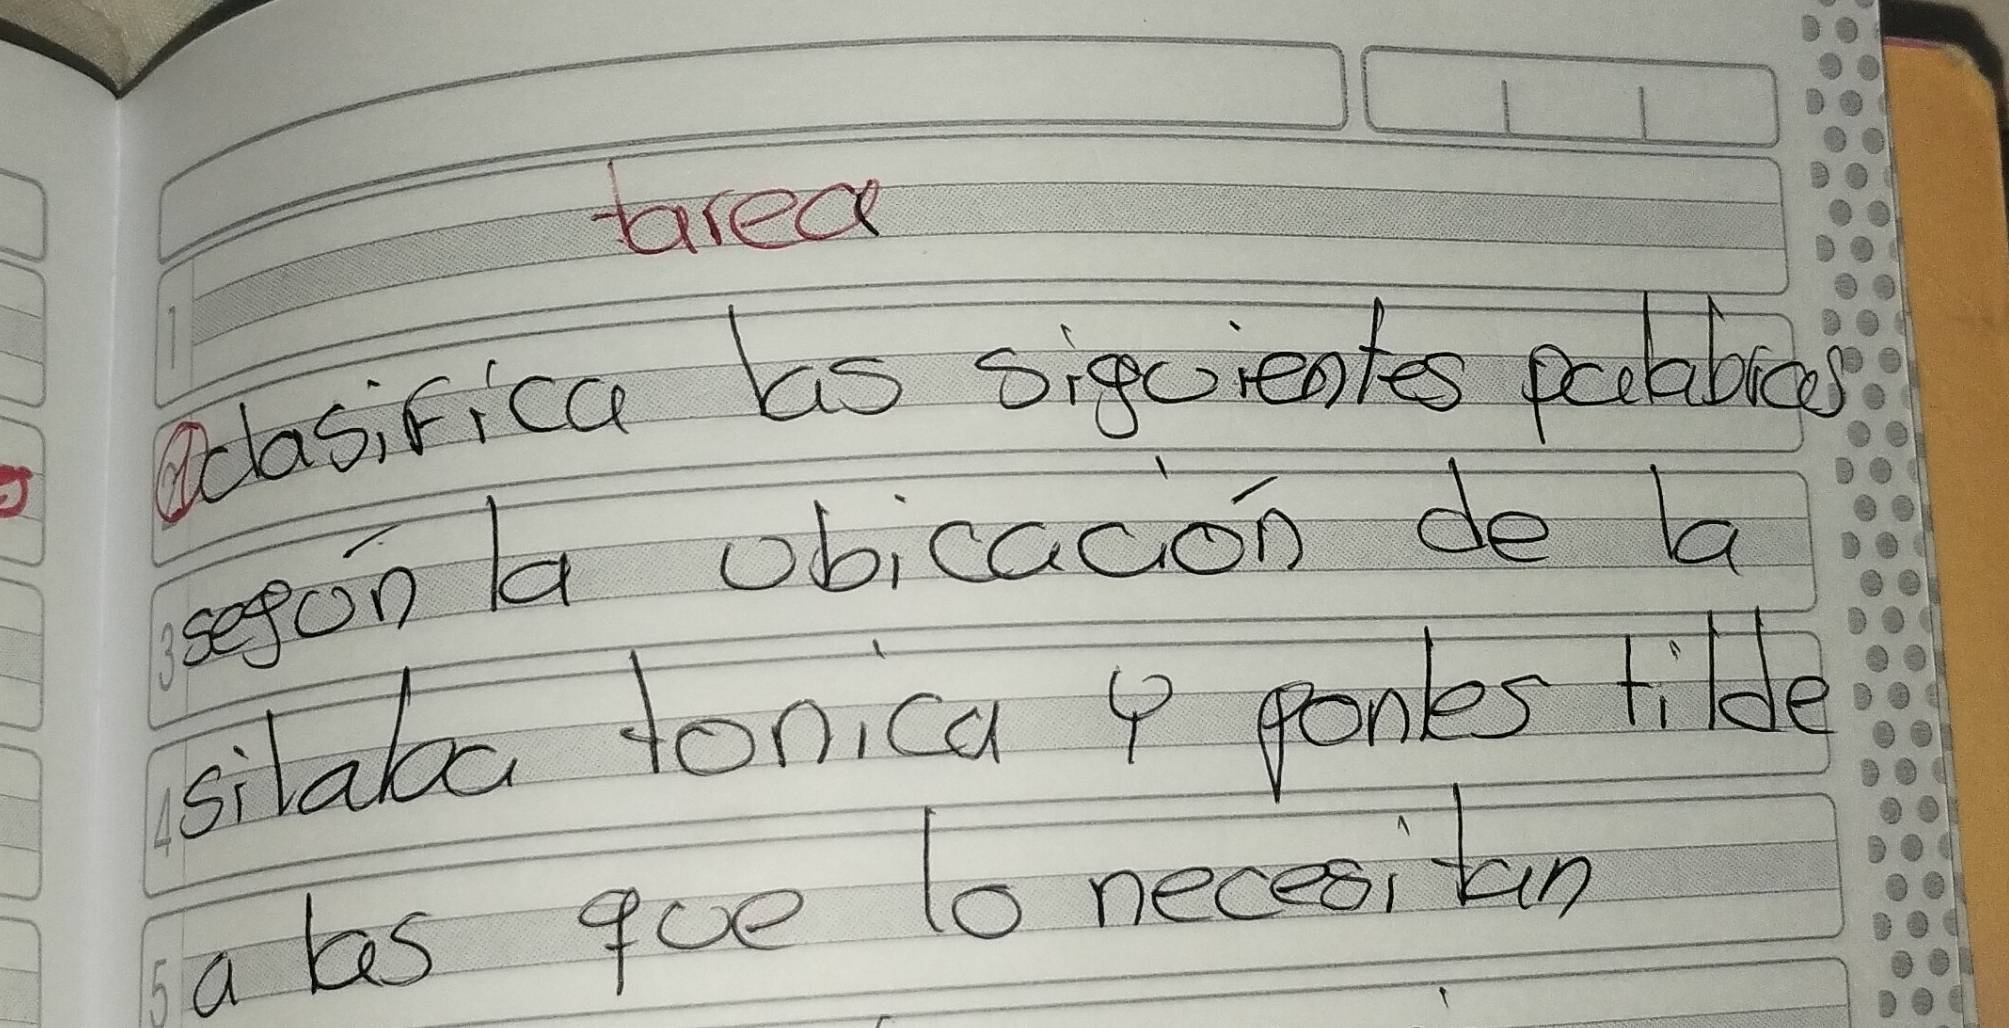 tarea
① clasifica las siguientes palabras
según la ubicación de la
silaba tonica y ponles tilde
a las que lo necesitan